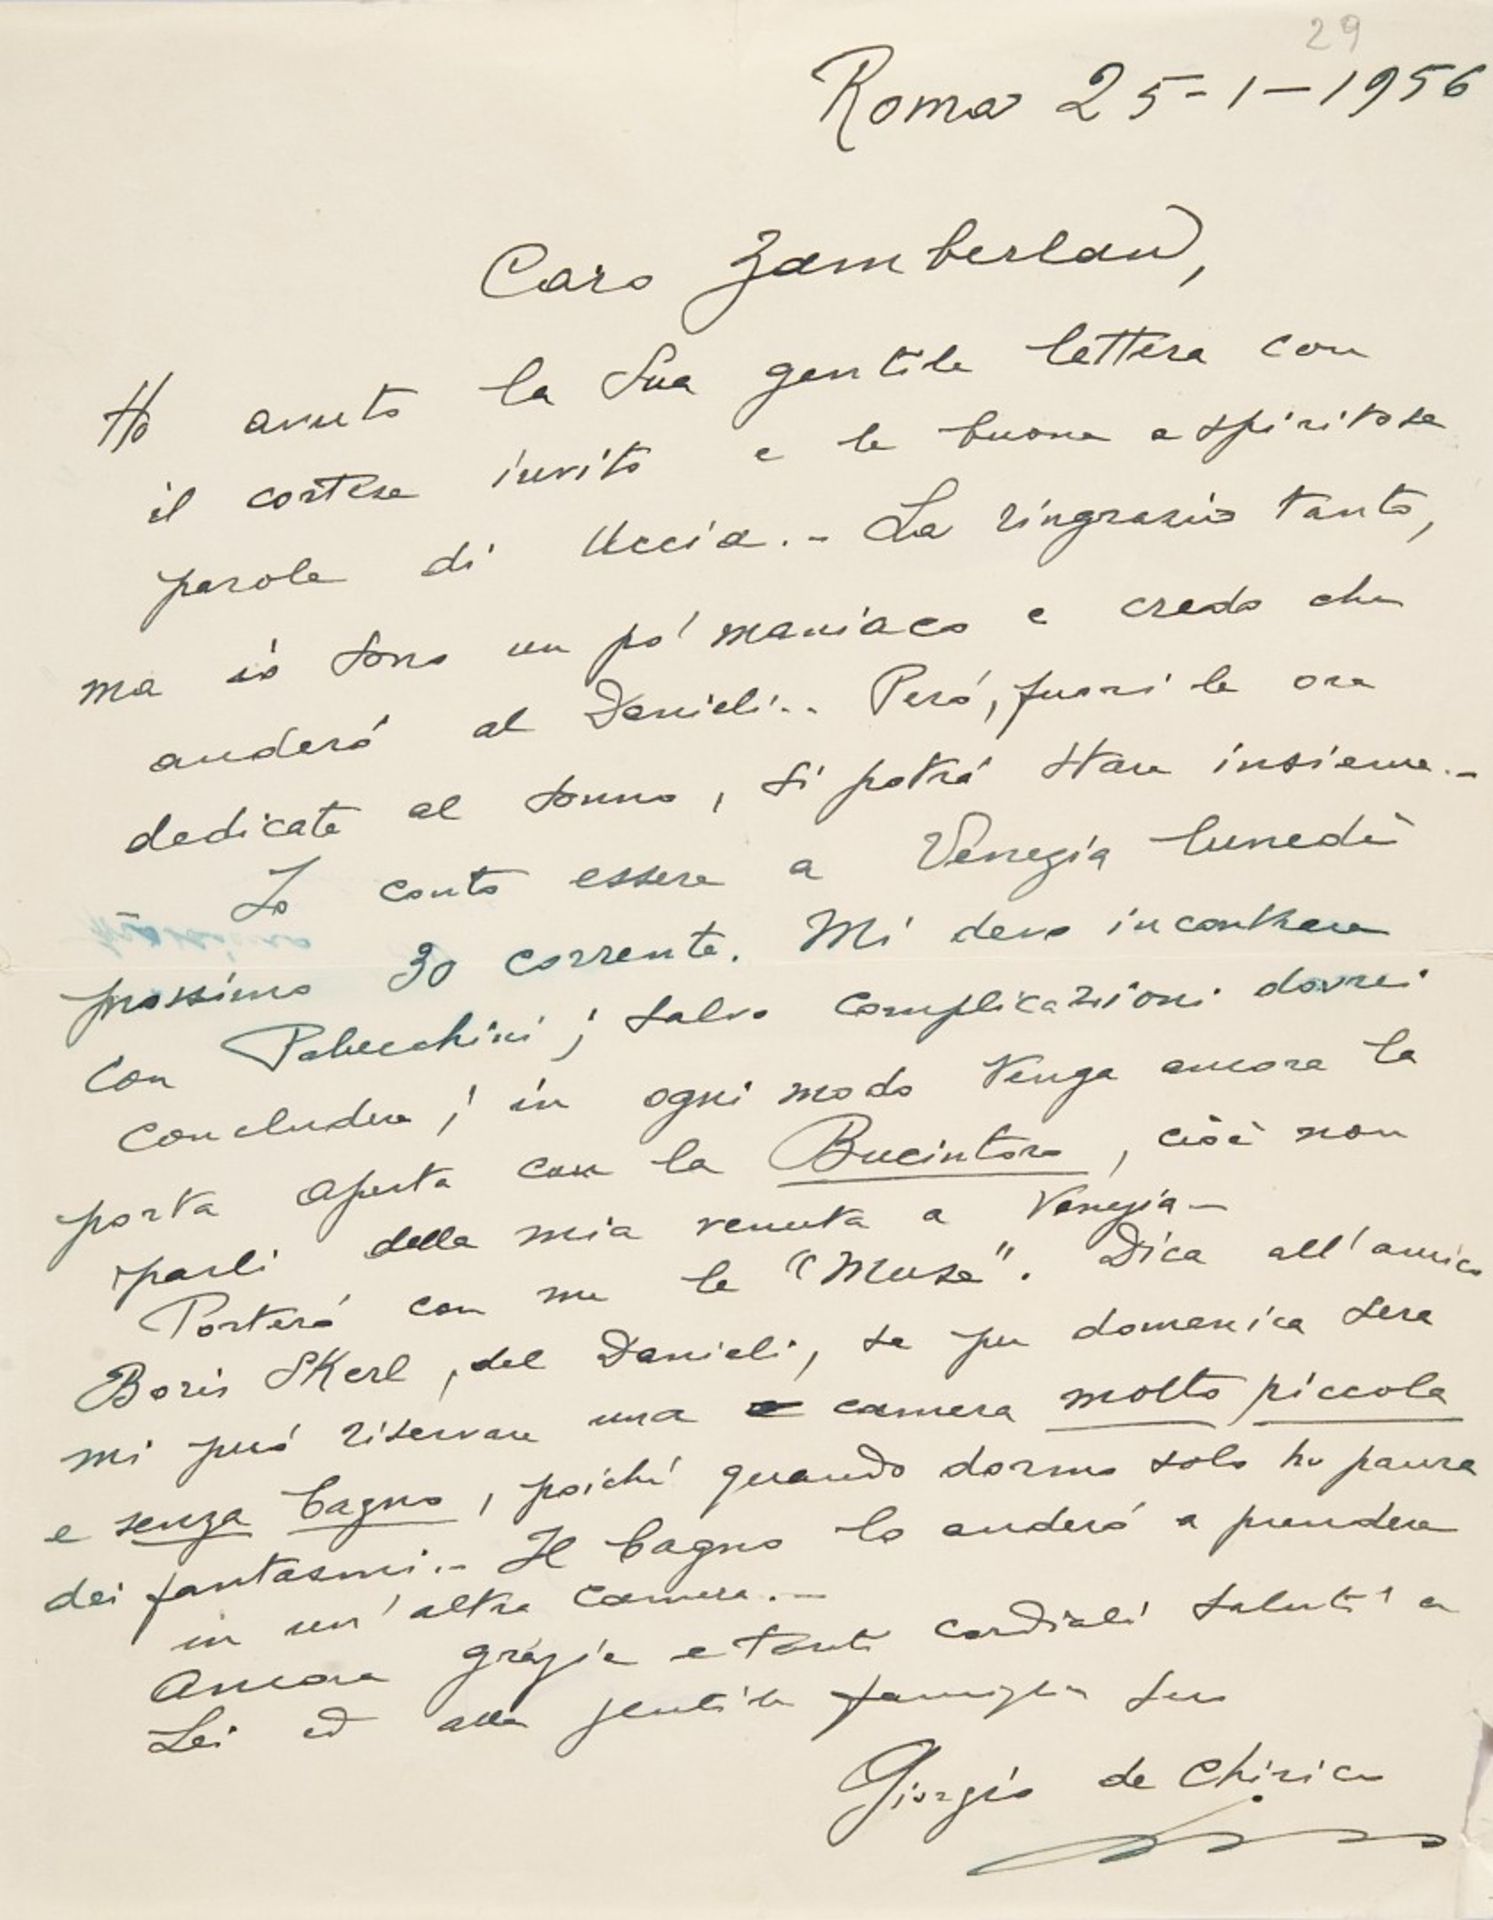 29
Roma 25-1-1956
Caro Zamberlan,
Ho avuto la Sua gentile lettera con
il cortese invito e le buone e spiritose
parole di Uccia.- La ringrazio tanto,
ma io sono un pó maniaco e credo che
anderó al Danieli.. Peró, fuori le ore
dedicate al sonno, si potrá stare insieme.-
Io conto essere a Venezia lunedì
prossimo 30 corrente. Mi devo incontrare
con Pabecchini; salvo complicazioni dovrei
concludere; in ogni modo tenga ancora la
porta aperta con la Bucintoro, cioè non
parli della mia venuta a Venezia-
Porteró con me le "Muse". Dica all'amico
Boris Skerl, del Danieli, se per domenica sera
mi puó riservare una camera molto piccola
e senza bagno, poiché quando dormo solo ho paura
dei fantasmi.- Il bagno lo anderó a prendere
in un'altra camera.-
Ancora grazie e tanti cordiali saluti a
Lei ed alla gentile famiglia suo
Giorgio de Chirico